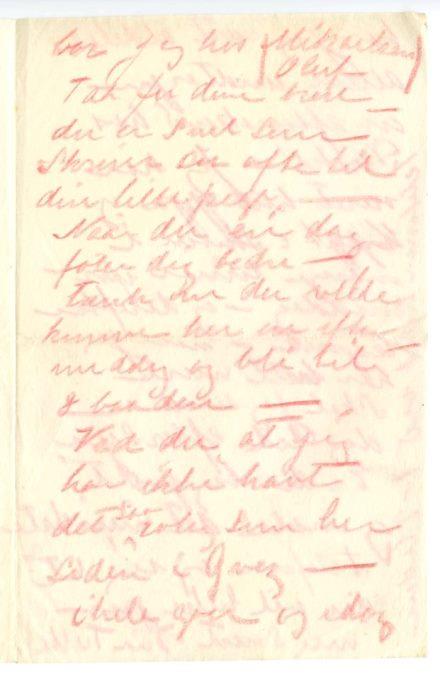 bor jeg hos (Mikaelsen
Oluf)
Tak for dine breve
du er snil som
Skriver saa ofte til
din lille
Naar du en dag
føler dig bedre —
tænk om du vilde
komme her en efter-
middag og bli til
Ved du at jeg
har ikke havt
det saa som her
siden i
i hele og idag